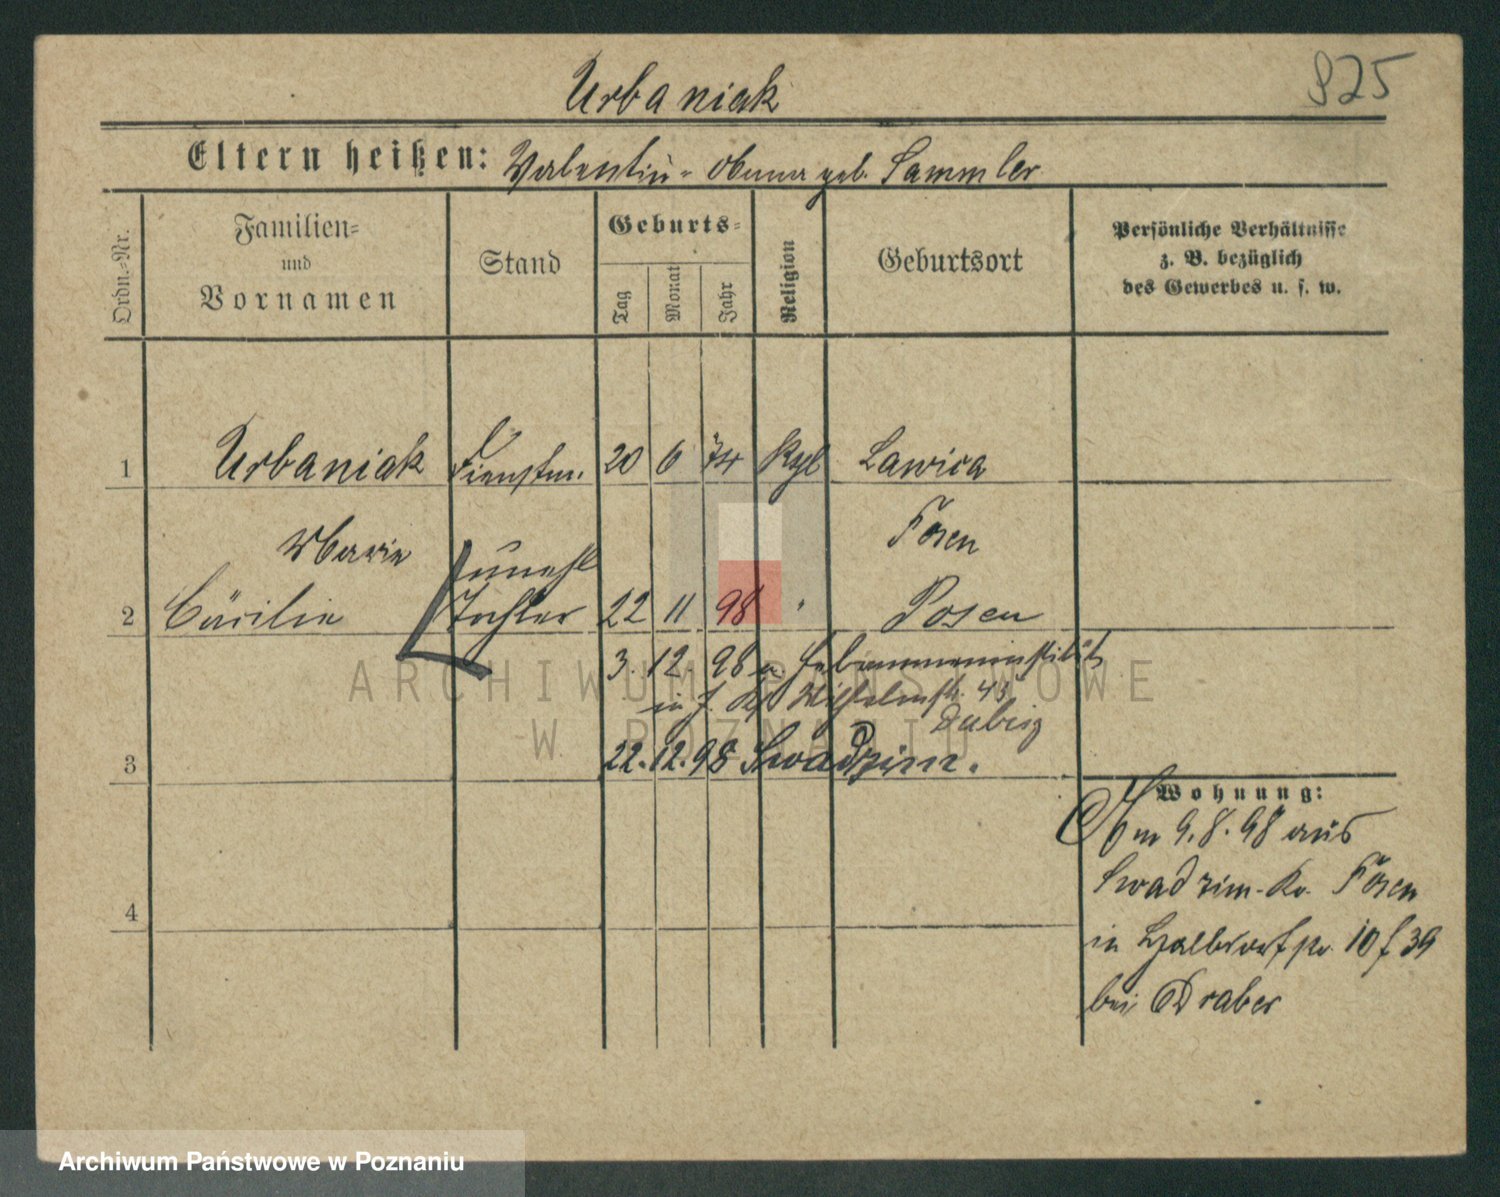 825
Urbaniak
Eltern heißen: Valentin - Anna geb. Sammler
Ordn.-Nr.
Familien-
und
Vornamen
Stand
Geburts-
Tag
Monat
Jahr
Religion
Geburtsort
Persönliche Verhältnisse
z. B. bezüglich
des Gewerbes u. s. w.
1 Urbaniak Dienstm. 20 6 74 Kgl Lawica
Marie Posen
unehl
2 Cäcilie Tochter 22 11 98 " Posen
3. 12. 98 a. Hebammeninstitut
in J. Wilhelmstr. 43
3 22. 12. 98 Swadzim.
Wohnung:
Am 9. 8. 98 aus
Swadzim - Kr. Posen
in Halbdorfstr. 10 f 39
4
bei Draber
ARCHIWUM PAŃSTWOWE
W POZNANIU
Archiwum Państwowe w Poznaniu